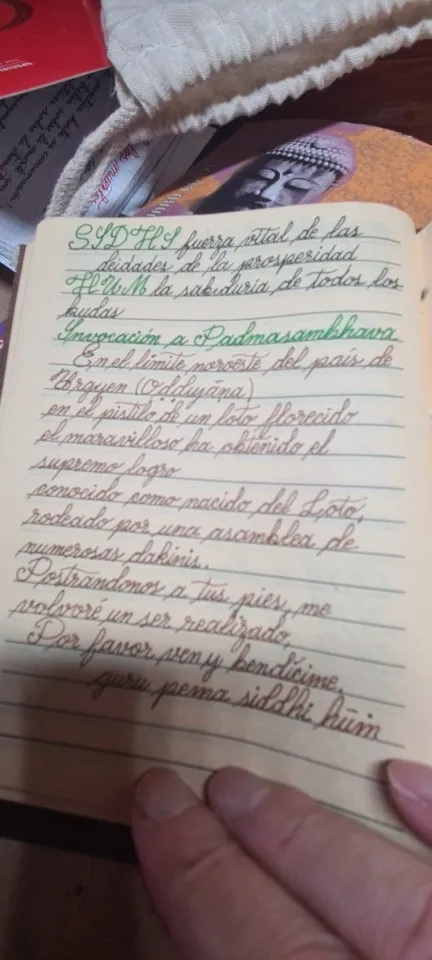 SIDHI fuerza vital de las
deidades de la prosperidad
HUM la sabiduria de todos los
budas
Invocación a Padmasambhava
En el límite noroeste del país de
Orgyen (Oddiyāna)
en el pistilo de un loto fflorecido
el maravilloso ha obtenido el
supremo logro
conocido como nacido del Loto,
rodeado por una asamblea de
numerosas dakinis.
Postrandonos a tus pies, me
volvoré un ser realizado,
Por favor ven y bendícime.
guru pema siddhi hūm